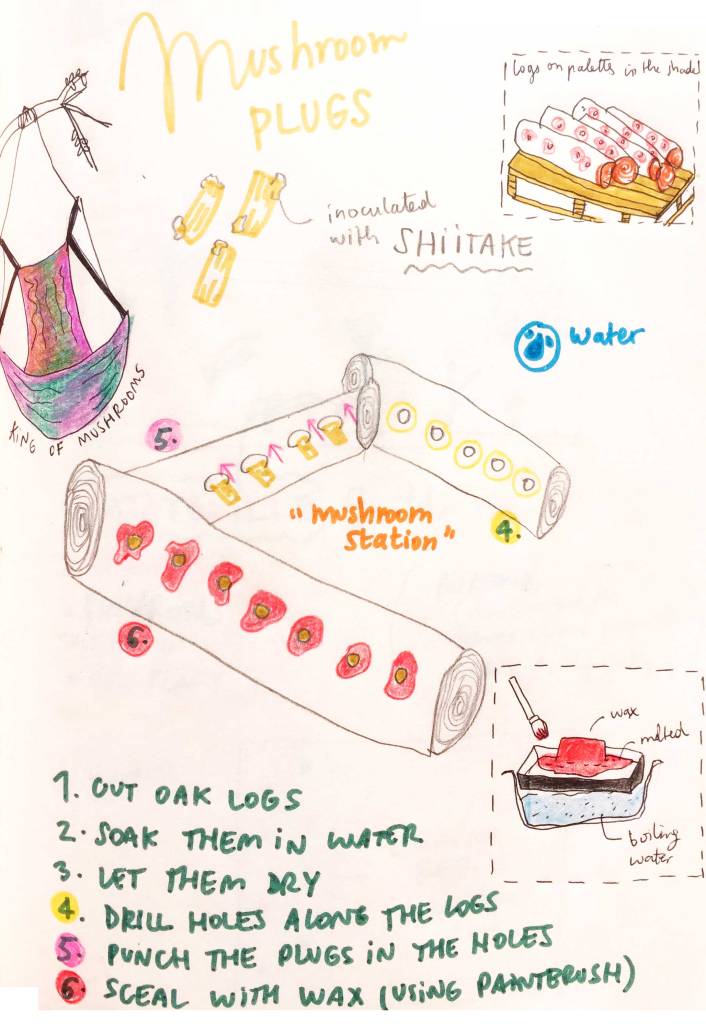 Mushroom
PLUGS
logs on palettes in the shade
inoculated
with SHIITAKE
water
KING OF MUSHROOMS
5.
"mushroom
station"
4.
6.
wax
melted
boiling
water
1. CUT OAK LOGS
2. SOAK THEM IN WATER
3. LET THEM DRY
4. DRILL HOLES ALONG THE LOGS
5. PUNCH THE PLUGS IN THE HOLES
6. SCEAL WITH WAX (USING PAINTBRUSH)